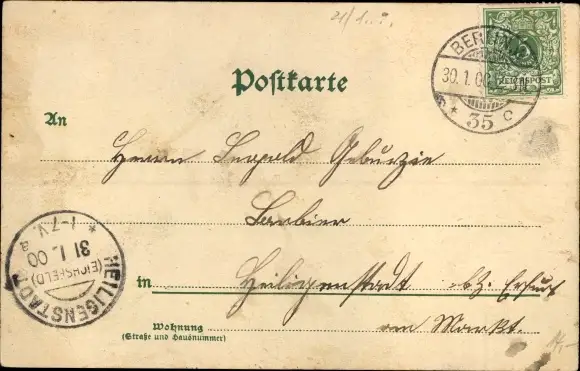 BERLIN
30.1.00
35 c
REICHSPOST
Postkarte
An
Herrn Leopold Geburzie
Barbier
in Heiligenstadt bz. Erfurt
Wohnung am Markt.
(Straße und Hausnummer)
HEILIGENSTADT
(EICHSFELD)
31.1.00
1-7V.
a